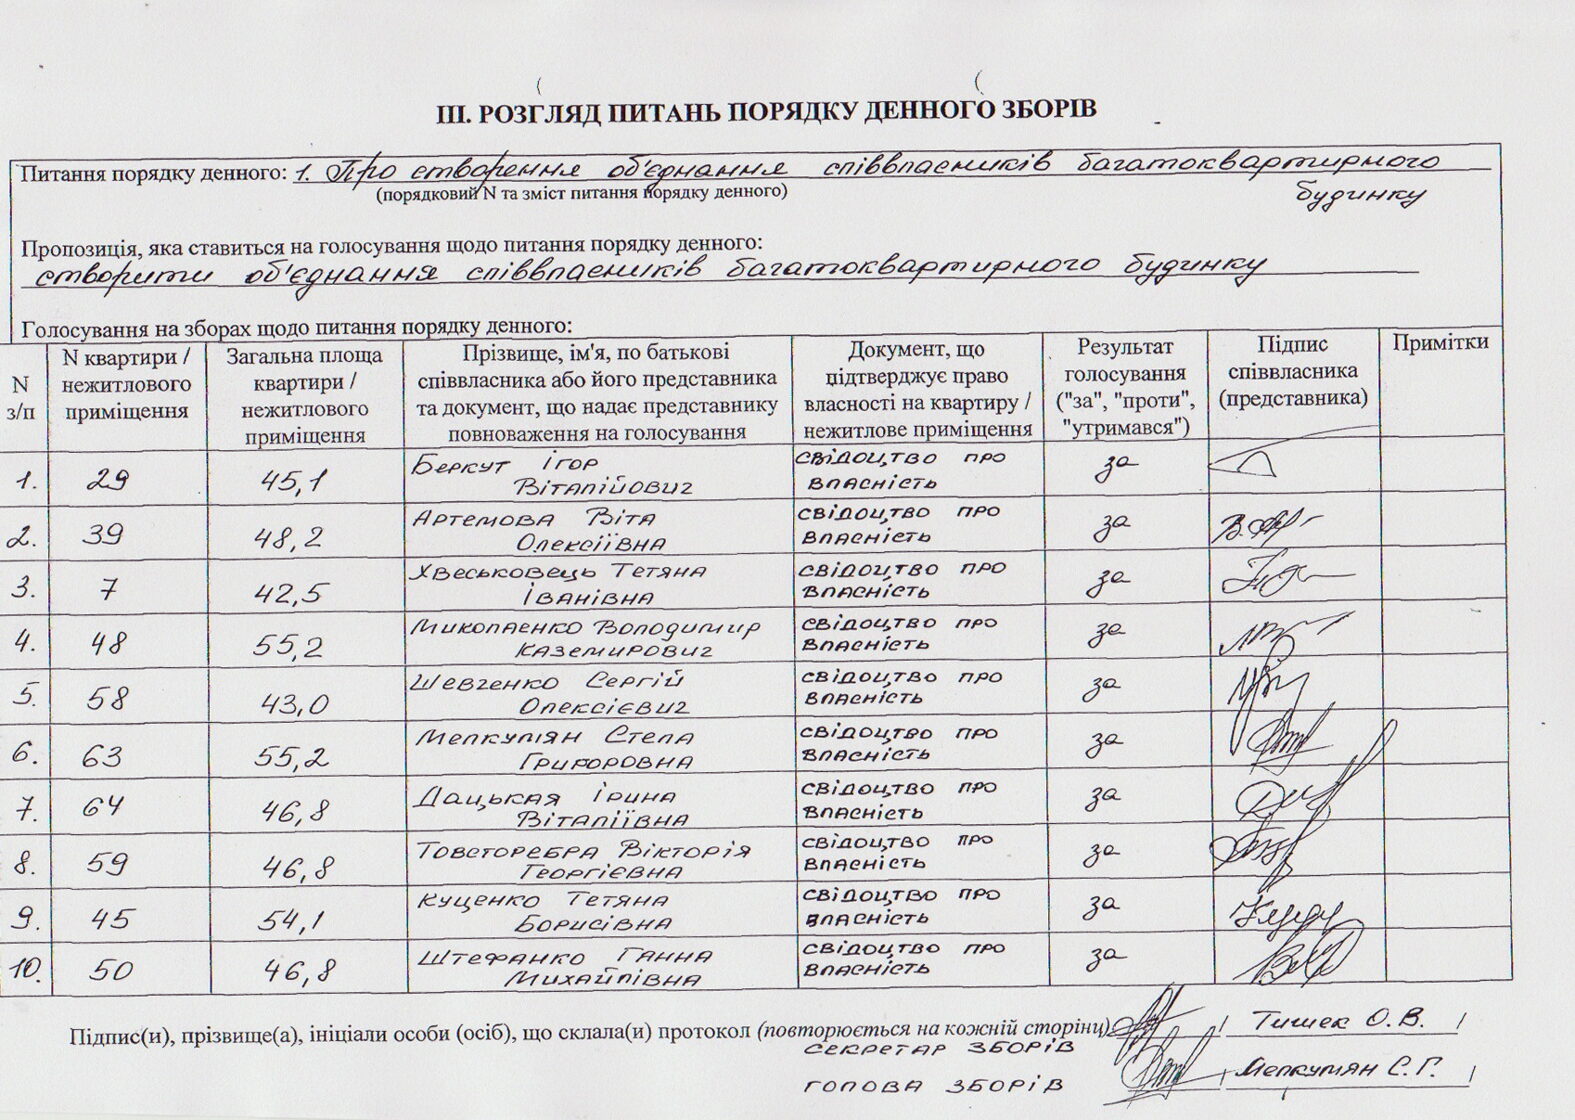 ІІІ. РОЗГЛЯД ПИТАНЬ ПОРЯДКУ ДЕННОГО ЗБОРІВ
Питання порядку денного: 1. Про створення об'єднання співвласників багатоквартирного
(порядковий N та зміст питання порядку денного)
будинку
Пропозиція, яка ставиться на голосування щодо питання порядку денного:
створити об'єднання співвласників багатоквартирного будинку
Голосування на зборах щодо питання порядку денного:
N з/п
N квартири / нежитлового приміщення
Загальна площа квартири / нежитлового приміщення
Прізвище, ім'я, по батькові співвласника або його представника та документ, що надає представнику повноваження на голосування
Документ, що підтверджує право власності на квартиру / нежитлове приміщення
Результат голосування ("за", "проти", "утримався")
Підпис співвласника (представника)
Примітки
1. 29 45,1 Беркут Ігор Віталійович свідоцтво про власність за
2. 39 48,2 Артемова Віта Олексіївна свідоцтво про власність за
3. 7 42,5 Хвеськовець Тетяна Іванівна свідоцтво про власність за
4. 48 55,2 Миколаенко Володимир Каземирович свідоцтво про власність за
5. 58 43,0 Шевченко Сергій Олексієвич свідоцтво про власність за
6. 63 55,2 Мелкумян Стела Григоровна свідоцтво про власність за
7. 64 46,8 Дацькая Ірина Віталіївна свідоцтво про власність за
8. 59 46,8 Товсторебра Вікторія Георгієвна свідоцтво про власність за
9. 45 54,1 Куценко Тетяна Борисівна свідоцтво про власність за
10. 50 46,8 Штефанко Ганна Михайлівна свідоцтво про власність за
Підпис(и), прізвище(а), ініціали особи (осіб), що склала(и) протокол (повторюється на кожній сторінці) / Тишек О.В. /
секретар зборів
голова зборів / Мелкумян С.Г. /